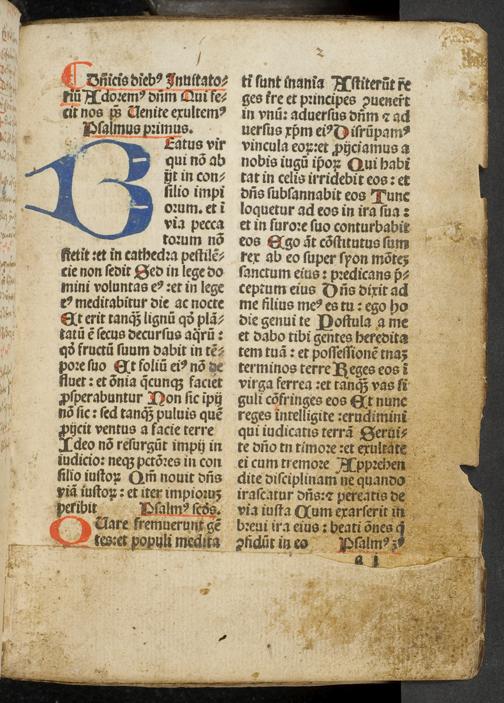 Dñicis dieb⁹ Inuitato⸗
riũ Adorem⁹ dñm Qui fe⸗
cit nos p̃s Uenite exultem⁹
Psalmus primus.
BEatus vir
qui nõ ab
ijt in con⸗
silio impi
orum. et ĩ
via pecca
torum nõ
stetit : et in cathedra pestilẽ⸗
cie non sedit Sed in lege do
mini voluntas e⁹ : et in lege
e⁹ meditabitur die ac nocte
Et erit tanqȝ lignũ qď plã⸗
tatũ ẽ secus decursus aq̃rũ :
qď fructũ suum dabit in tẽ⸗
pore suo Et foliũ ei⁹ nõ de
fluet : et õnia q̃cunqȝ faciet
ꝓsperabuntur Non sic ipij
nõ sic : sed tanqȝ puluis quẽ
ꝓijcit ventus a facie terre
Ideo nõ resurgũt impij in
iudicio: neqȝ pctõres in con
silio iustoꝝ Qm̃ nouit dñs
viã iustoꝝ : et iter impioruȝ
peribit Psalm⁹ scd̃s.
QUare fremuerunt gẽ
tes: et populi medita
ti sunt inania Astiterũt re̅
ges tre et principes ꝯuenert̃
in vnũ : aduersus dñm ⁊ ad
uersus xp̃m ei⁹ Disrũpam⁹
vincula eoꝝ: et ꝓijciamus a
nobis iugũ ip̃oꝝ Qui habi
tat in celis irridebit eos : et
dñs subsannabit eos Tunc
loquetur ad eos in ira sua :
et in furore suo conturbabit
eos Ego ãt cõstitutus sum
rex ab eo super syon mõteȝ
sanctum eius : predicans p̃⸗
ceptum eius Dñs dixit ad
me filius me⁹ es tu : ego ho
die genui te Postula a me
et dabo tibi gentes heredita
tem tuã : et possessionẽ tuaȝ
terminos terre Reges eos ĩ
virga ferrea : et tanqȝ vas fi
guli cõfringes eos Et nunc
reges intelligite : erudimini
qui iudicatis terrã Serui⸗
te dño ĩn timore : et exultate
ei cum tremore Apprehen
dite disciplinam ne quando
irascatur dñs: ⁊ pereatis de
via iusta Cum exarserit in
breui ira eius : beati õnes q̃
ꝯfidũt in eo Psalm⁹ 3⁹
a j